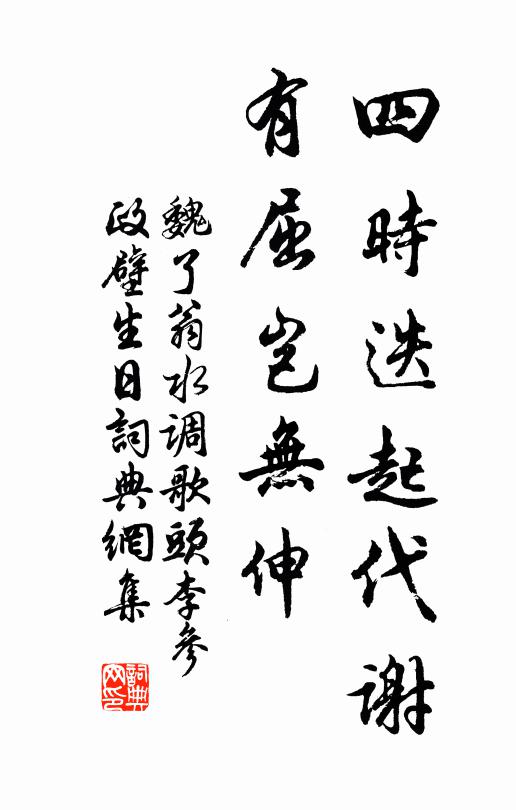 四時迭起代謝
有屈豈無伸
魏了翁水调歌頭李參
政壁生日詞典網集
詞典网印